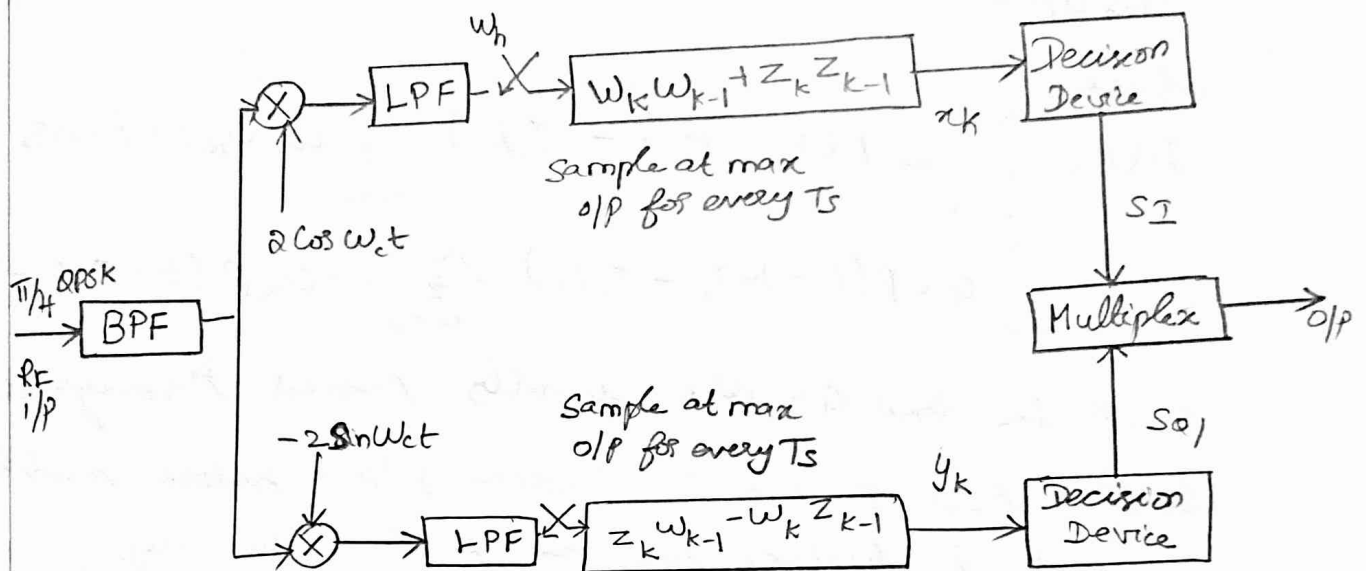 Wn
LPF
Wk Wk-1 + Zk Zk-1
xk
Decision
Device
Sample at max
O/P for every Ts
2 Cos Wct
SI
π/4 QPSK
BPF
RF
i/P
Multiplex
O/P
Sample at max
O/P for every Ts
-2 Sin Wct
SQ
yk
LPF
Zk Wk-1 - Wk Zk-1
Decision
Device